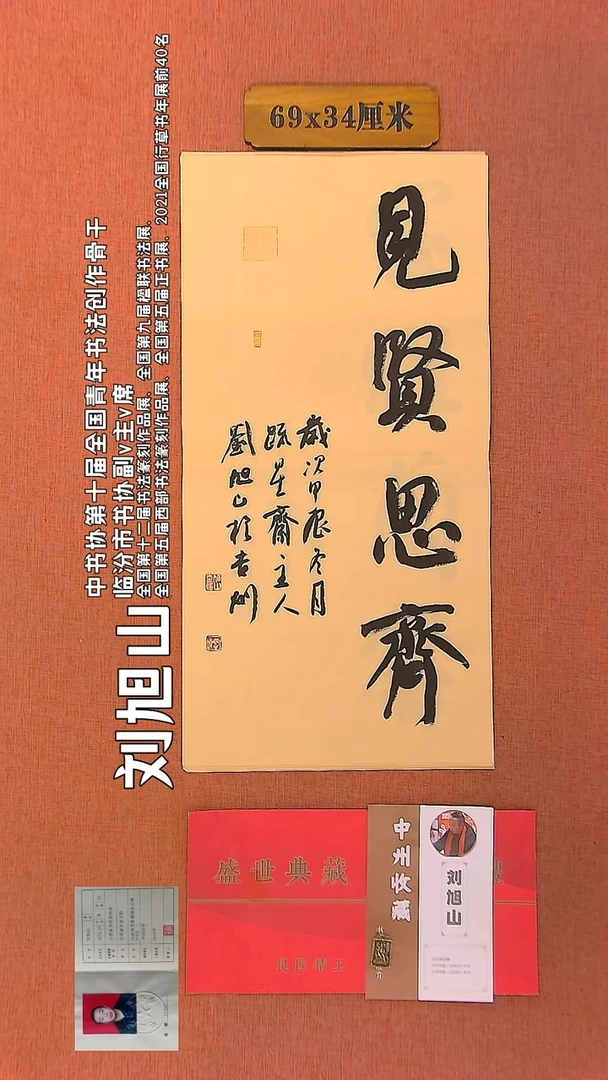 69x34厘米
見賢思齊
歲次甲辰冬月
疏星齋主人
劉旭山於吉州
刘旭山
中书协第十届全国青年书法创作骨干
临汾市书协副v主v席
全国第十二届书法篆刻作品展、全国第九届楹联书法展、
全国第五届西部书法篆刻作品展、全国第五届正书展、2021全国行草书年展前40名
盛世典藏
中州收藏
刘旭山